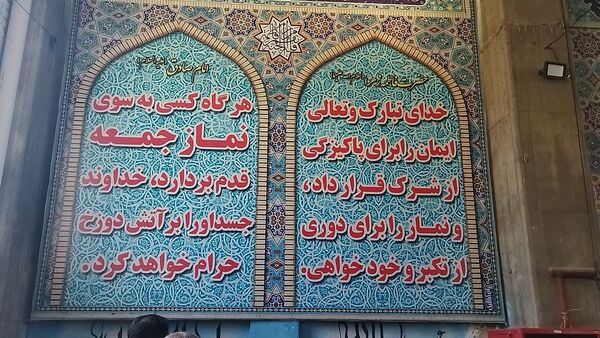 حضرت فاطمه زهرا
خدای تبارک وتعالی
ایمان را برای پاکیزگی
از شرک قرار داد،
و نماز را برای دوری
از تکبر و خود خواهی.
امام صادق
هر گاه کسی به سوی
نماز جمعه
قدم بردارد، خداوند
جسد او را بر آتش دوزخ
حرام خواهد کرد.